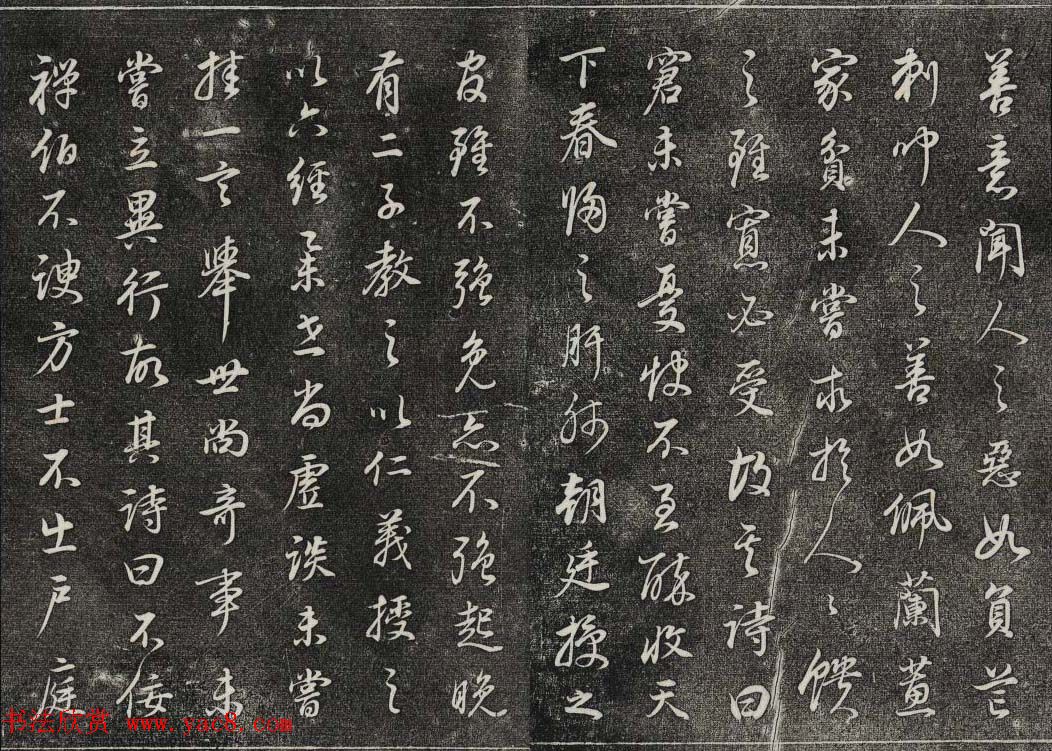 善意聞人之惡如負芒
刺聞人之善如佩蘭蕙
家貧未嘗求於人〻饋
之雖寡必受故其詩曰
窘未嘗憂飲不至醉收天
下春歸之肝肺朝廷授之
官雖不強免亦不強起晚
有二子教之以仁義授之
以六經舉世尚虛談未嘗
挂一言舉世尚奇事未
嘗立異行故其詩曰不佞
禪伯不諛方士不出戶庭
书法欣赏 www.yac8.com